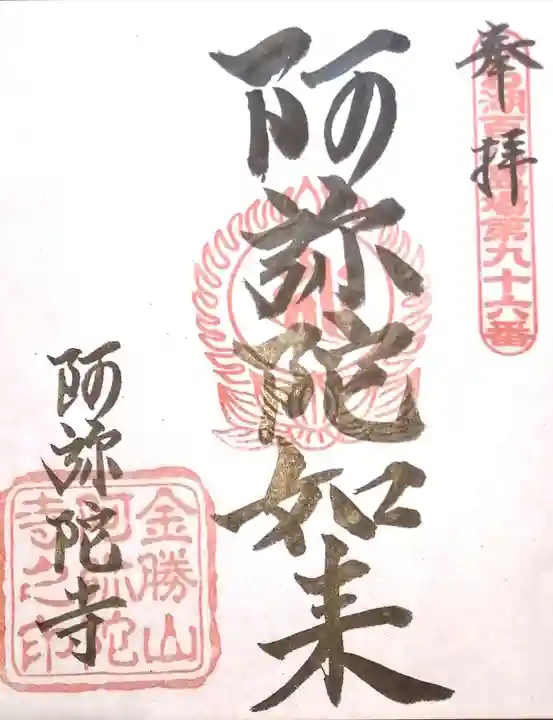 奉拝
湖百
場第九十六番
阿弥陀如来
阿弥陀寺
金勝山
阿弥陀
寺之印